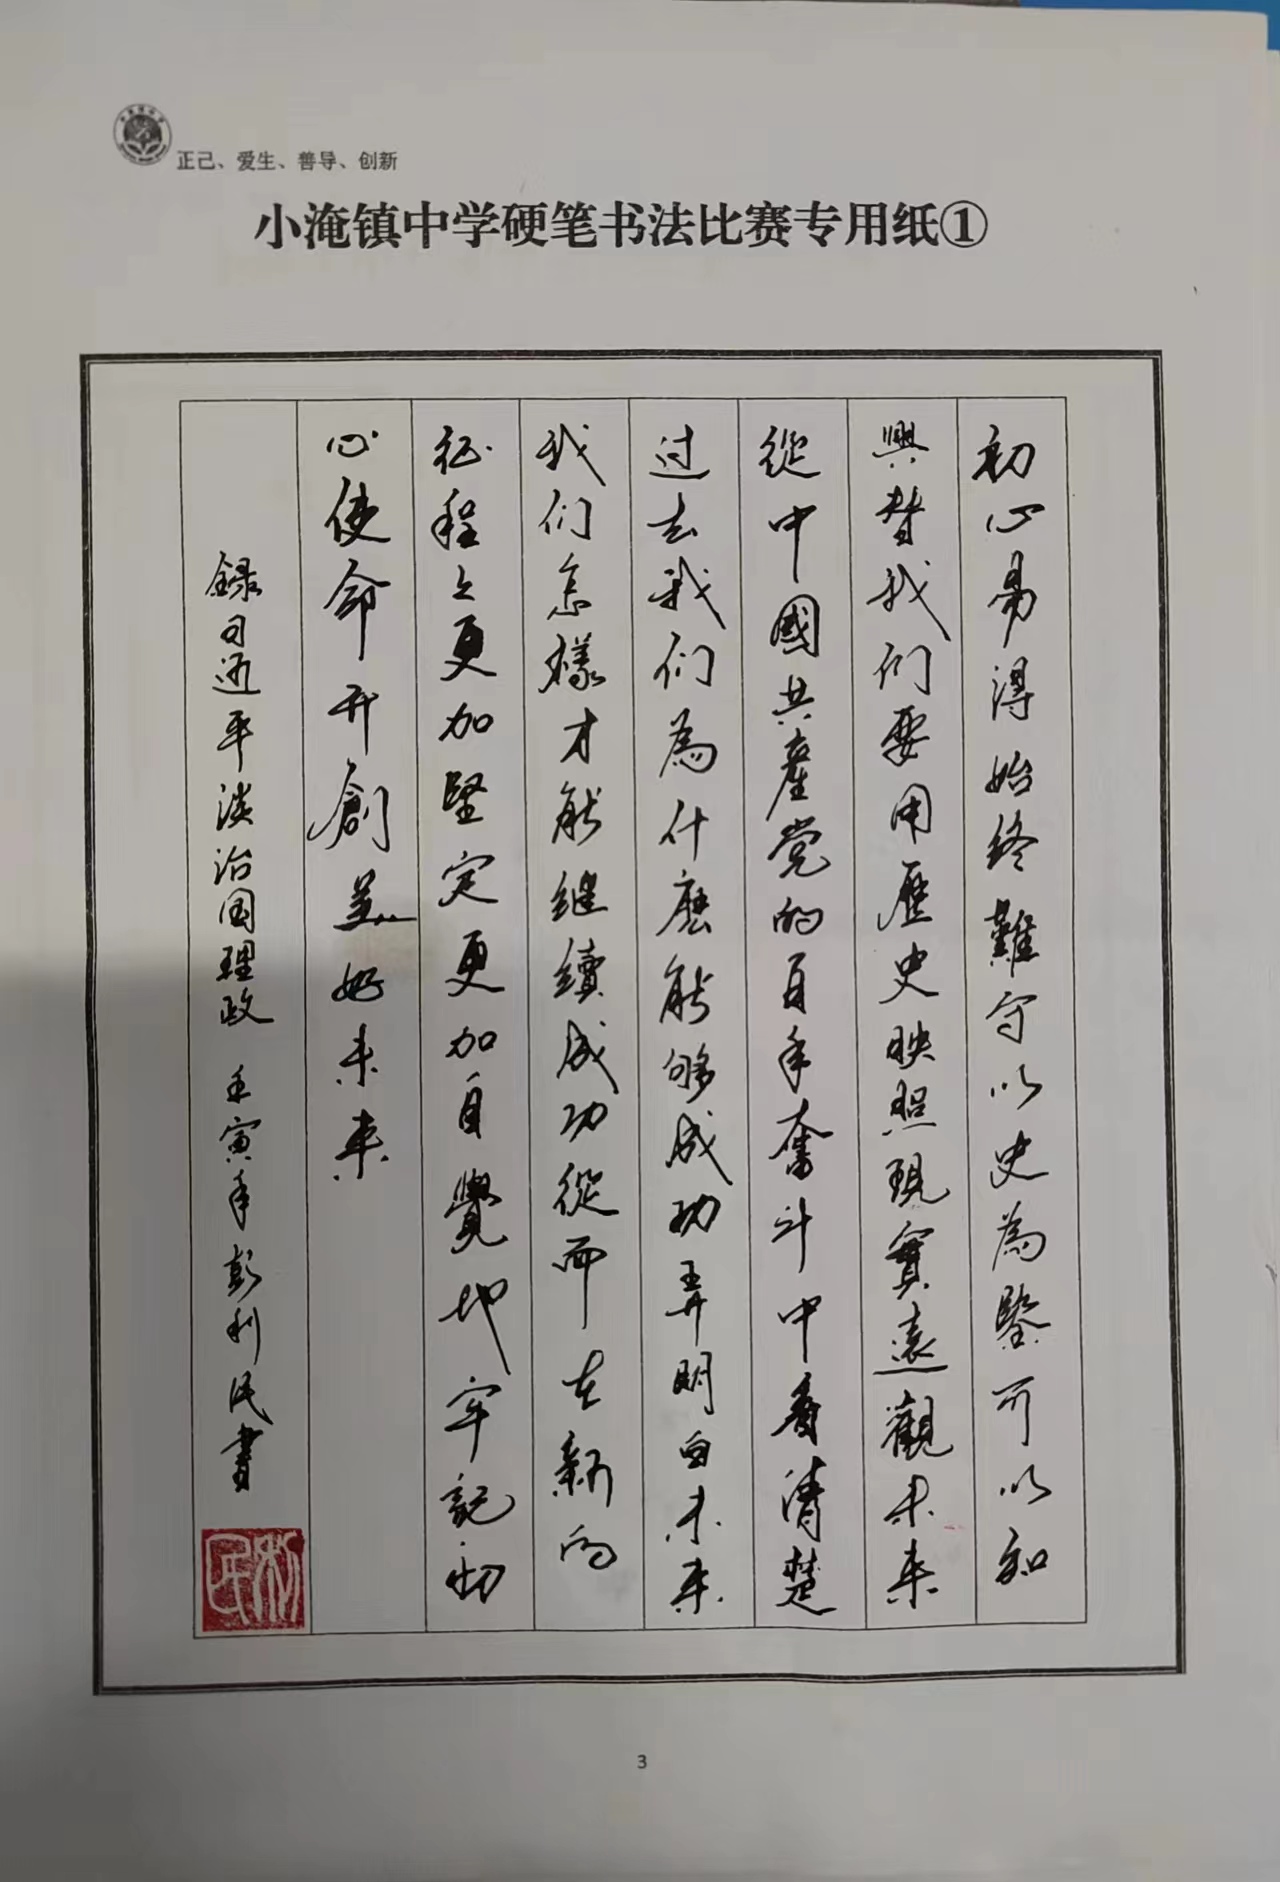 正己、爱生、善导、创新
小淹镇中学硬笔书法比赛专用纸①
初心易得始终難守以史為鑒可以知
興替我们要用歷史映照現實遠觀未来
從中國共產党的百年奮斗中看清楚
过去我们為什麽能够成功弄明白未来
我们怎樣才能继續成功從而在新的
征程上更加堅定更加自覺地牢記初
心使命开創美好未来
録习近平谈治国理政 壬寅年彭利民書
利民
3